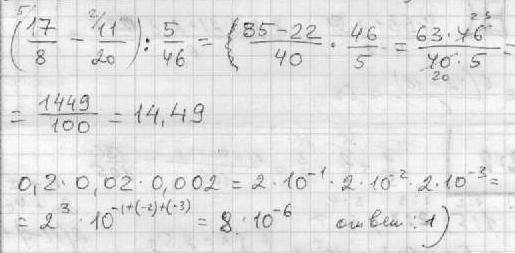 (17/8 - 11/20) : 5/46 = (85-22)/40 · 46/5 = (63·46)/(40·5) =
= 1449/100 = 14,49
0,2 · 0,02 · 0,002 = 2·10⁻¹ · 2·10⁻² · 2·10⁻³ =
= 2³ · 10⁻¹⁺⁽⁻²⁾⁺⁽⁻³⁾ = 8·10⁻⁶ ответ: 1)